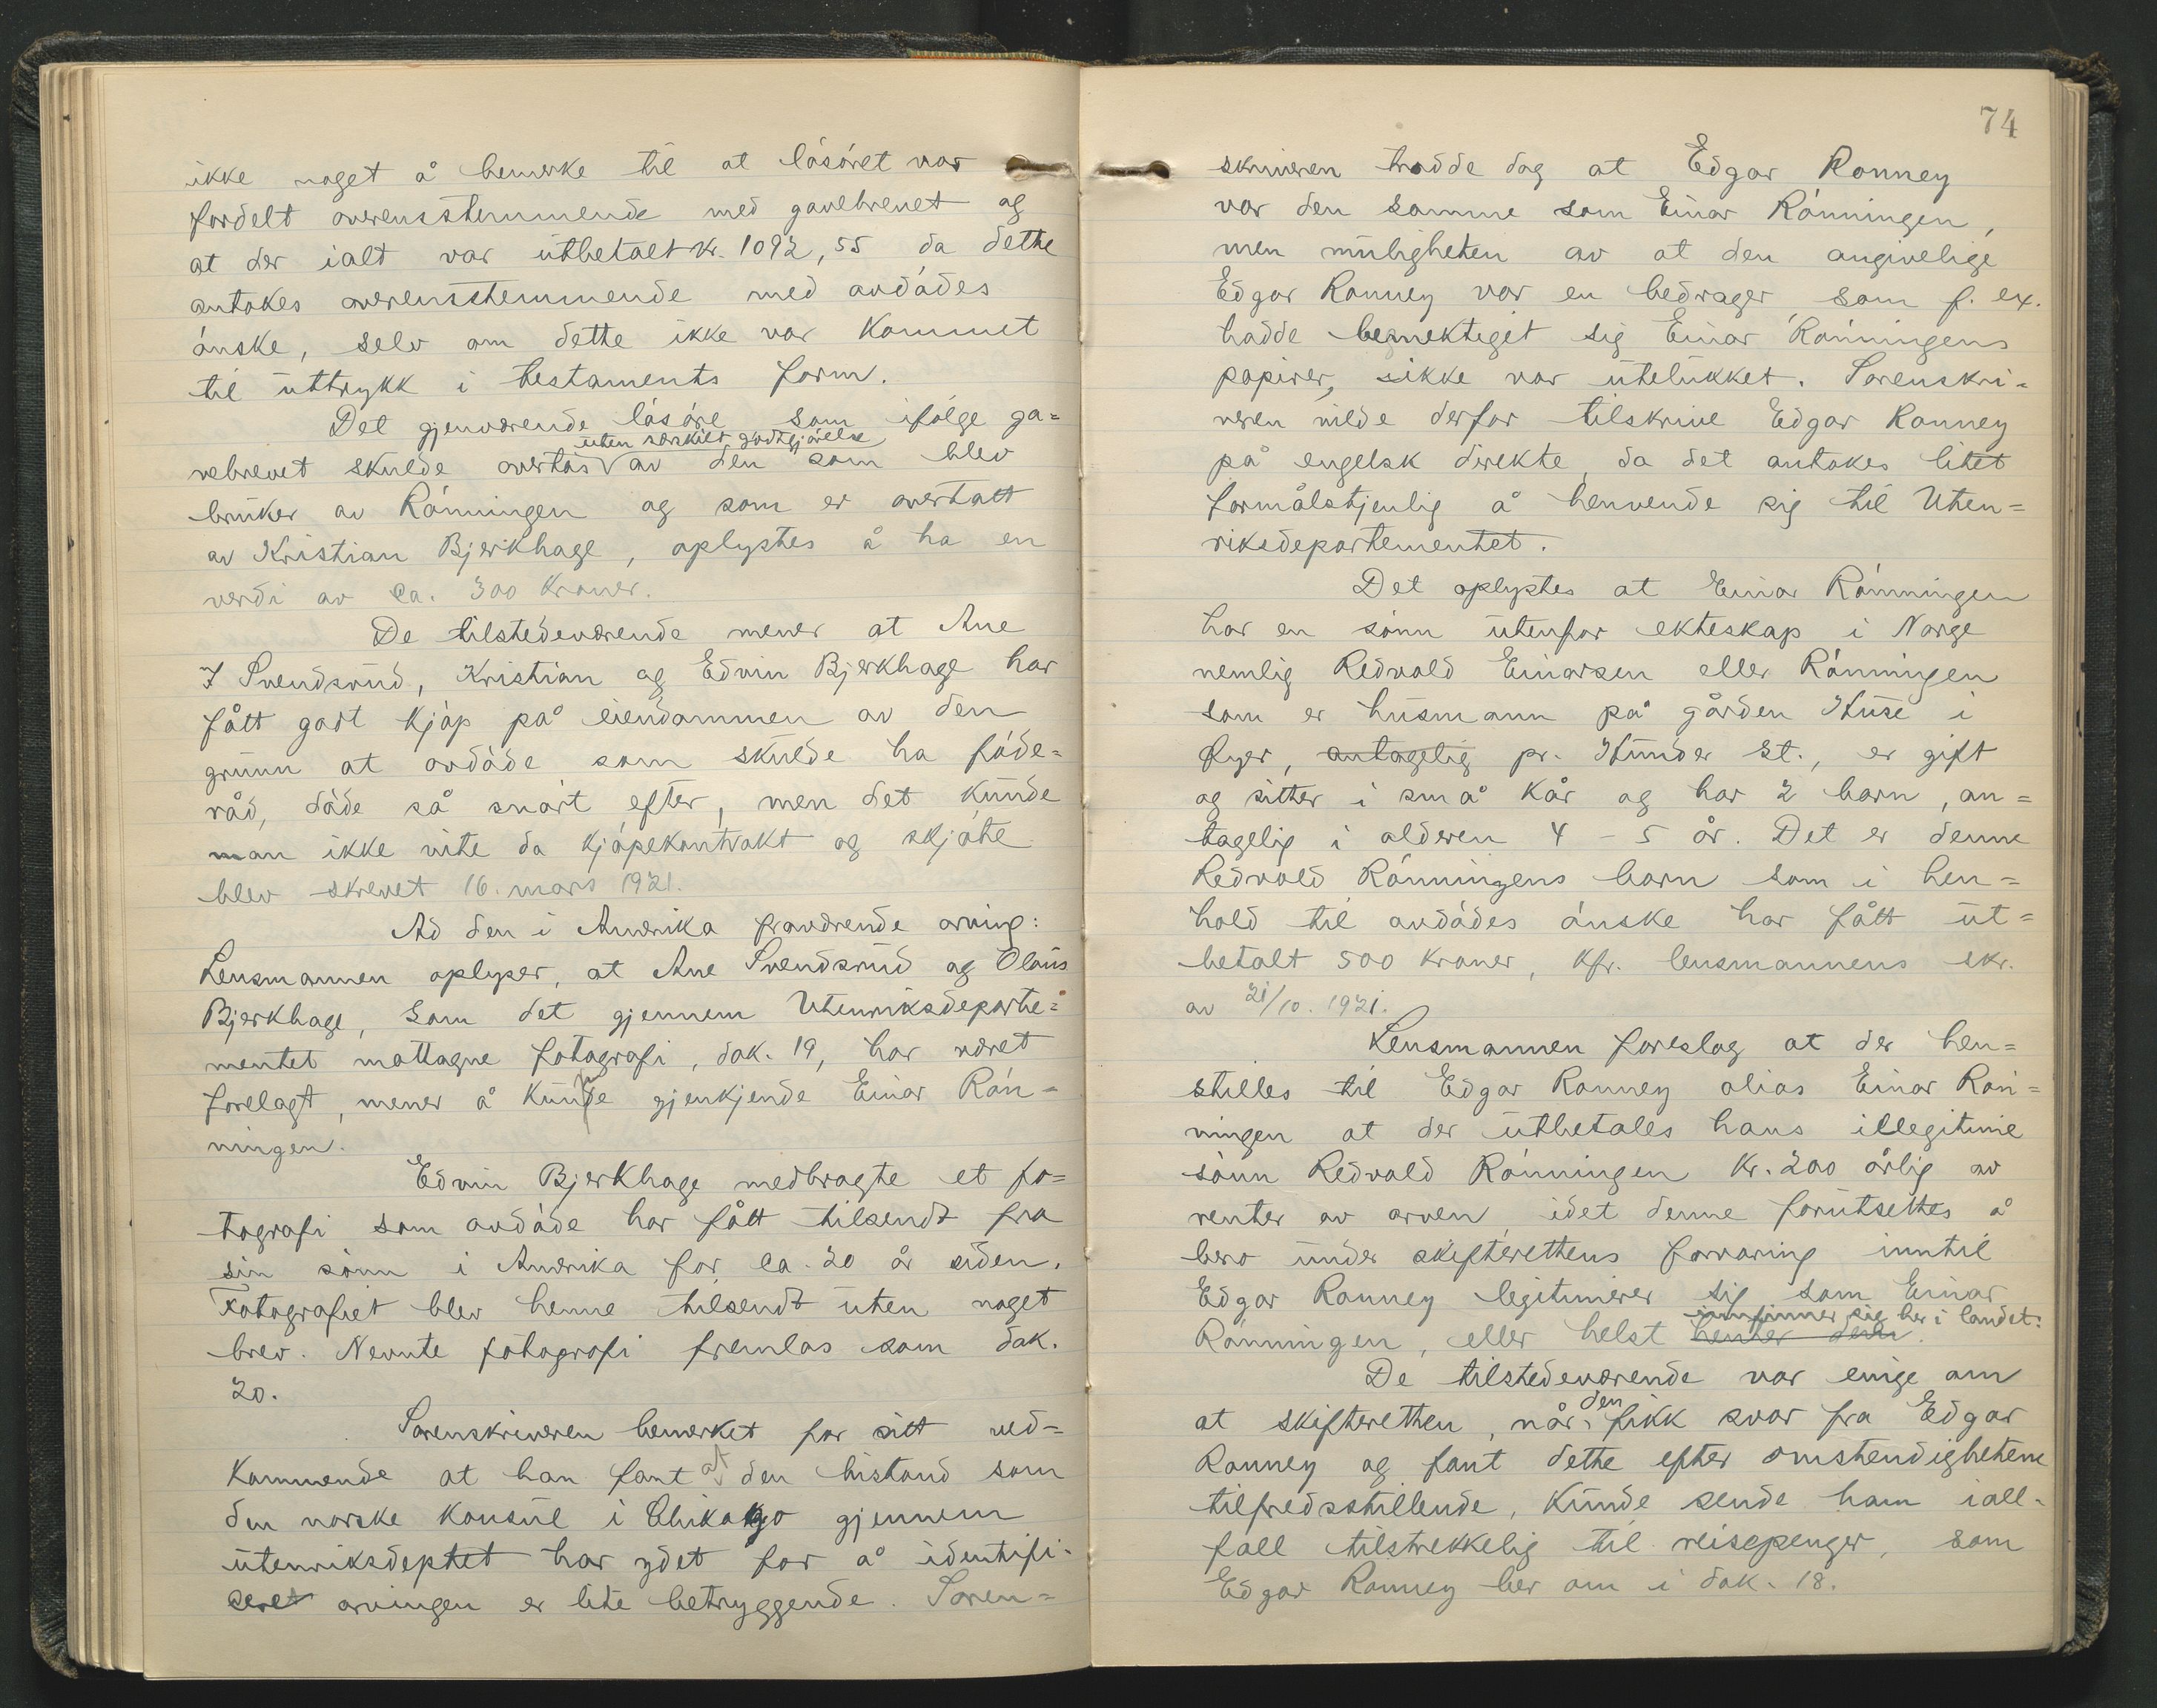 ikke noget å bemerke til at løsøret var
fordelt overensstemmende med gavebrevet og
at der ialt var utbetalt kr. 1092,55 da dette
antokes overensstemmende med avdødes
ønske, selv om dette ikke var kommet
til uttrykk i testaments form.
Det gjenværende løsøre som ifølge ga=
uten særskilt godtgjørelse
vebrevet skulde overtas av den som blev
bruker av Rønningen og som er overtatt
av Kristian Bjerkhage, oplystes å ha en
verdi av ca. 300 kroner.
De tilstedeværende mener at Ane
I Svendsrud, Kristian og Edvin Bjerkhage har
fått godt kjøp på eiendommen av den
grunn at avdøde som skulde ha føde=
råd, døde så snart efter, men det kunde
man ikke vite da kjøpekontrakt og skjøte
blev skrevet 16. mars 1921.
Ad den i Amerika fraværende arving:
Lensmannen oplyser, at Ane Svendsrud og Olaus
Bjerkhage, som det gjennem Utenriksdeparte=
mentet mottagne fotografi, dok. 19, har været
forelagt, mener å kunne gjenkjende Einar Røn=
ningen.
Edvin Bjerkhage medbragte et fo=
tografi som avdøde har fått tilsendt fra
sin sønn i Amerika for ca. 20 år siden.
Fotografiet blev henne tilsendt uten noget
brev. Nevnte fotografi fremlas som dok.
20.
Sorenskriveren bemerket for sitt ved=
kommende at han fant at den bistand som
den norske konsul i Chikago gjennem
utenriksdeptet har ydet for å identifi-
seret arvingen er lite betryggende. Soren=
74
skriveren trodde dog at Edgar Ronney
var den samme som Einar Rønningen,
men muligheten av at den angivelige
Edgar Ronney var en bedrager, som f. ex.
hadde bemektiget sig Einar Rønningens
papirer, ikke var utelukket. Sorenskri=
veren vilde derfor tilskrive Edgar Ronney
på engelsk direkte, da det antokes litet
formålstjenlig å henvende sig til Uten=
riksdepartementet.
Det oplystes at Einar Rønningen
har en sønn utenfor ekteskap i Norge
nemlig Redvald Einarsen eller Rønningen
som er husmann på gården Huse i
Øyer, antagelig pr. Hunder st., er gift
og sitter i små kår og har 2 barn, an=
tagelig i alderen 4 - 5 år. Det er denne
Redvald Rønningens barn som i hen=
hold til avdødes ønske har fått ut=
betalt 500 kroner, kfr. lensmannens skr.
av 21/10. 1921.
Lensmannen foreslog at der hen=
stilles til Edgar Ronney alias Einar Røn=
ningen at der utbetales hans illegitime
sønn Redvald Rønningen kr. 200 årlig av
renter av arven, idet denne forutsettes å
bero under skifterettens forvaring inntil
Edgar Ronney legitimerer sig som Einar
innfinner sig her i landet.
Rønningen, eller helst henter den.
De tilstedeværende var enige om
den
at skifteretten, når fikk svar fra Edgar
Ronney og fant dette efter omstendighetene
tilfredsstillende, kunde sende ham iall-
fall tilstrekkelig til reisepenger, som
Edgar Ronney ber om i dok. 18.